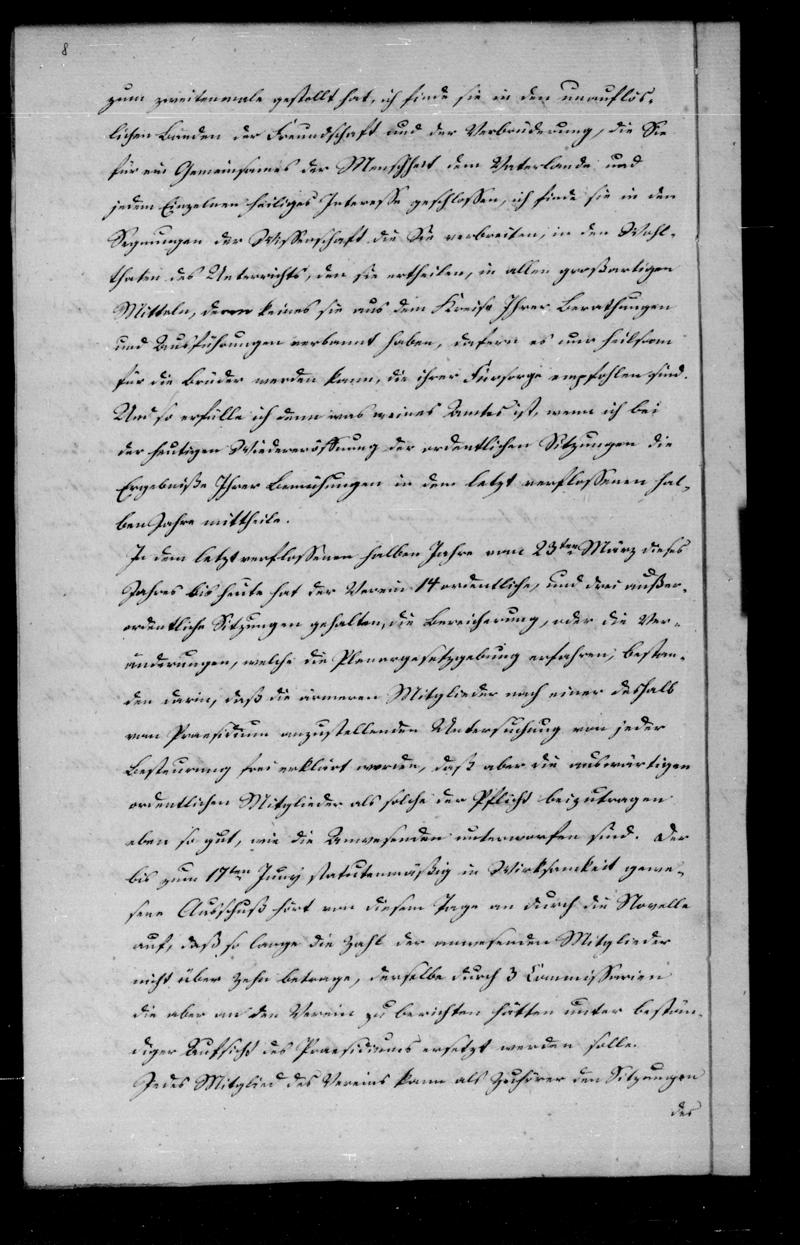 8
zum zweitenmale gestellt hat, ich finde sie in den unauflös-
lichen Banden der Freundschaft und der Verbrüderung, die Sie
für ein Gemeinsames der Menschheit dem Vaterlande und
jedem Einzelnen heiliges Interesse geschlossen, ich finde sie in den
Segnungen der Wissenschaft die Sie verbreiten, in den Wohl-
thaten des Unterrichts, den sie ertheilen, in allen großartigen
Mitteln, deren keines sie aus dem Kreise Ihrer Berathungen
und Ausführungen verbannt haben, dafern es nur heilsam
für die Brüder werden kann, die ihrer Fürsorge empfohlen sind.
Und so erfülle ich denn was meines Amtes ist, wenn ich bei
der heutigen Wiedereröffnung der ordentlichen Sitzungen die
Ergebniße Ihrer Bemühungen in dem letzt verflossenen hal-
ben Jahre mittheile.
In dem letztverflossenen halben Jahre vom 23ten März dieses
Jahres bis heute hat der Verein 14 ordentliche, und drei außer-
ordentliche Sitzungen gehalten, die Bereicherung, oder die Ver-
änderungen, welche die Plenargesetzgebung erfahren, bestan-
den darin, daß die ärmeren Mitglieder nach einer deshalb
vom Praesidium anzustellenden Untersuchung von jeder
Besteurung frei erklärt worden, daß aber die auswärtigen
ordentlichen Mitglieder als solche der Pflicht beizutragen
eben so gut, wie die Anwesenden unterworfen sind. Der
bis zum 17ten Juny statutenmäßig in Wirksamkeit gewe-
sene Ausschuß hört von diesem Tage an durch die Novelle
auf, daß so lange die Zahl der anwesenden Mitglieder
nicht über zehn betrage, derselbe durch 3 Commissarien
die aber an den Verein zu berichten hätten unter bestän-
diger Aufsicht des Praesidiums ersetzt werden solle.
Jedes Mitglied des Vereins kann als Zuhörer den Sitzungen
des